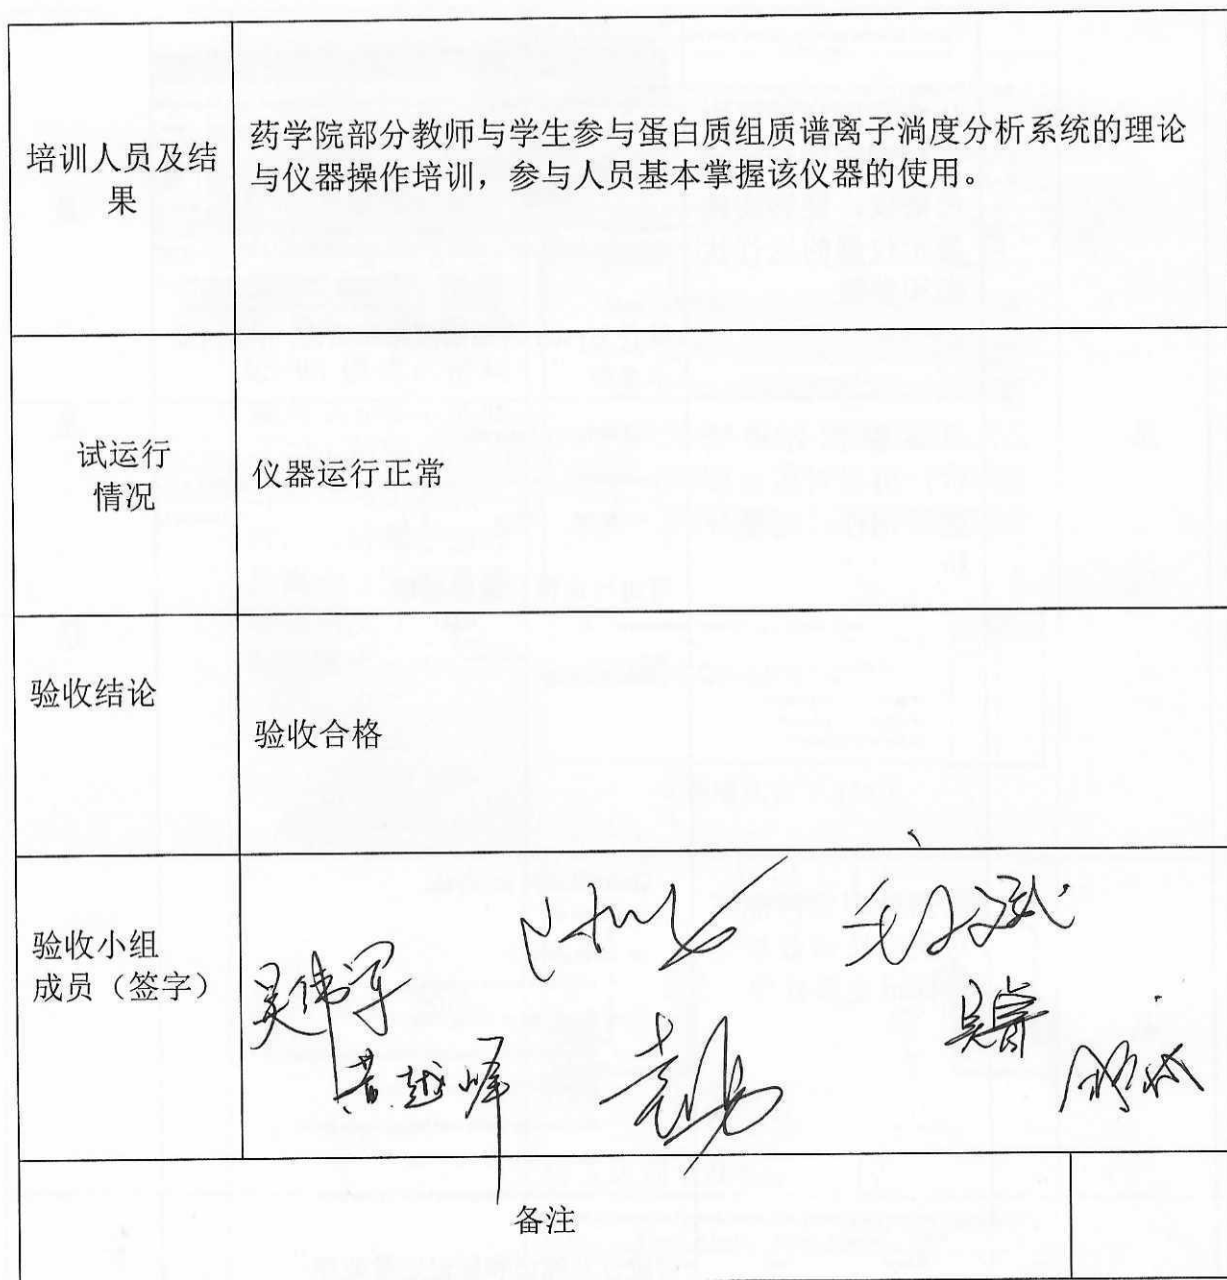 培训人员及结
果
药学院部分教师与学生参与蛋白质组质谱离子淌度分析系统的理论
与仪器操作培训，参与人员基本掌握该仪器的使用。
试运行
情况
仪器运行正常
验收结论
验收合格
验收小组
成员（签字）
吴伟军
黄越峰
吴睿
备注